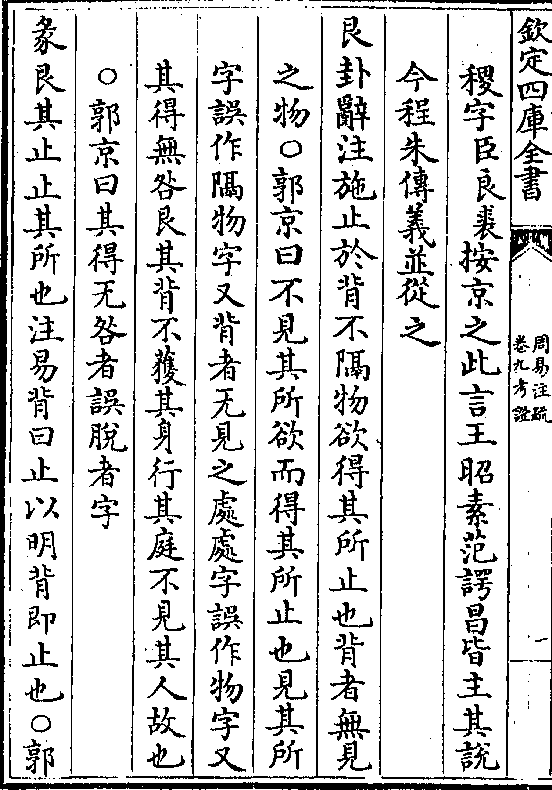 欽定四庫全書
周易注疏
卷九考證
一
稷字臣良裘按京之此言王昭素范諤昌皆主其説
今程朱傳義並從之
艮卦辭注施止於背不隔物欲得其所止也背者無見
之物○郭京曰不見其所欲而得其所止也見其所
字誤作隔物字又背者无見之處處字誤作物字又
其得無咎艮其背不獲其身行其庭不見其人故也
○郭京曰其得无咎者誤脱者字
彖艮其止止其所也注易背曰止以明背即止也○郭